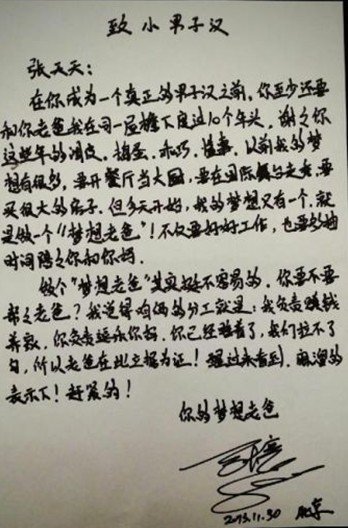 致小男子汉
张天天：
在你成为一个真正的男子汉之前，你至少还要
和你老爸我在同一屋檐下度过10个年头，谢谢你
这些年的调皮、捣蛋、乖巧、懂事。以前我的梦
想有很多，要开餐厅当大厨，要在国际舞台走秀，要
买很大的房子。但今天开始，我的梦想只有一个，就
是做一个“梦想老爸”！不仅要好好工作，也要多抽
时间陪你和你妈。
做个“梦想老爸”其实挺不容易的，你要不要
帮帮老爸？我觉得咱俩的分工就是：我负责赚钱
养家，你负责逗乐你妈。你已经睡着了，我们拉不了
勾，所以老爸在此立据为证！醒过来看到，麻溜的
表示下！赶紧的！
你的梦想老爸
2013.11.30 北京